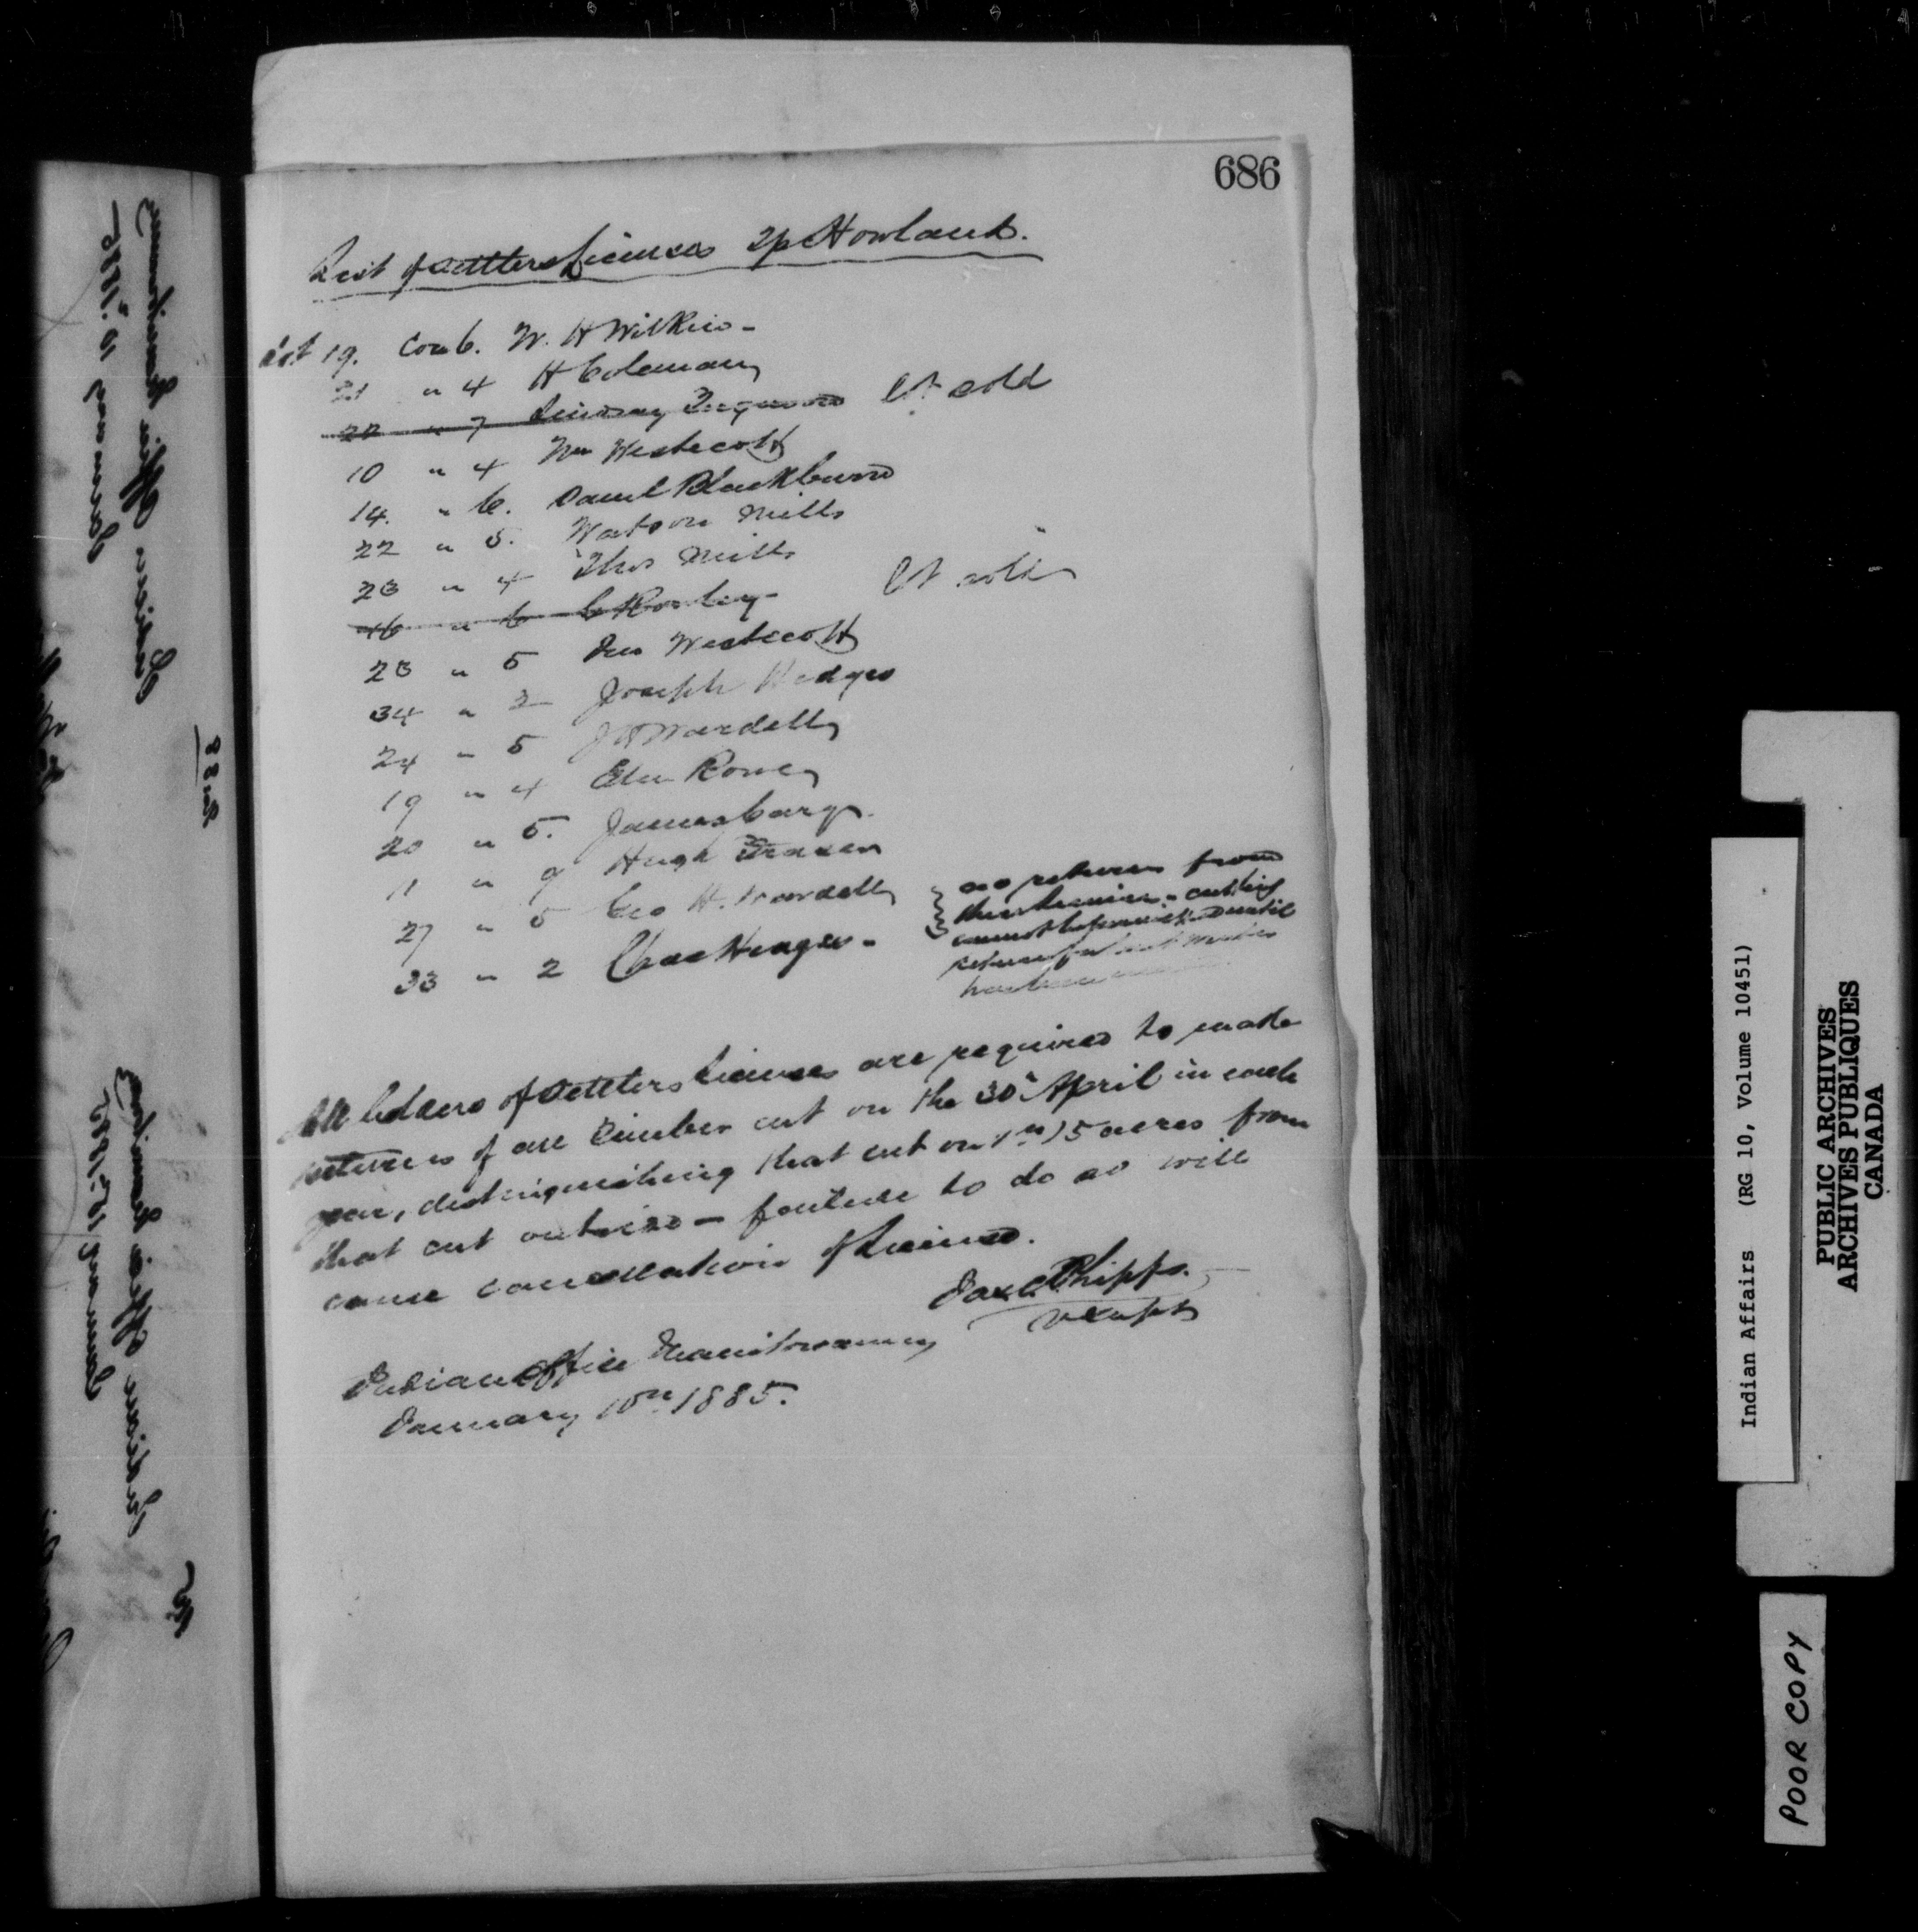 686
List of Settlers Licenses Tp Howland.
Lot 19. Con 6. W. H Wilkin -
21 " 4 H Coleman
22 " 7 Lindsay Lot sold
10 " 4 Wm Westecott
14. " 6. Daniel Blackburn
22 " 5. Watson Mills
23 " 4 Thos Mills
16 " 6 Lot sold
23 " 5 Jno Westecott
34 " 2 Joseph Hedges
24 " 5 J H Wardell
19 " 4 Eben Rowe
20 " 5. James Cargo.
11 " 9 Hugh Frazer
27 " 5 Geo H. Wardell
33 " 2 Chas Hedges -
no returns from
these licenses - cutting
cannot be permitted until
return for last winter
has been
All holders of Settlers Licenses are required to make
returns of all Timber cut on the 30th April in each
year, distinguishing that cut on ye 15 acres from
that cut outside - failure to do so will
cause cancellation of License.
Jas. C. Phipps.
V Supt
Indian Office Manitowaning
January 10th 1885.
Indian Affairs (RG 10, Volume 10451)
PUBLIC ARCHIVES
ARCHIVES PUBLIQUES
CANADA
POOR COPY